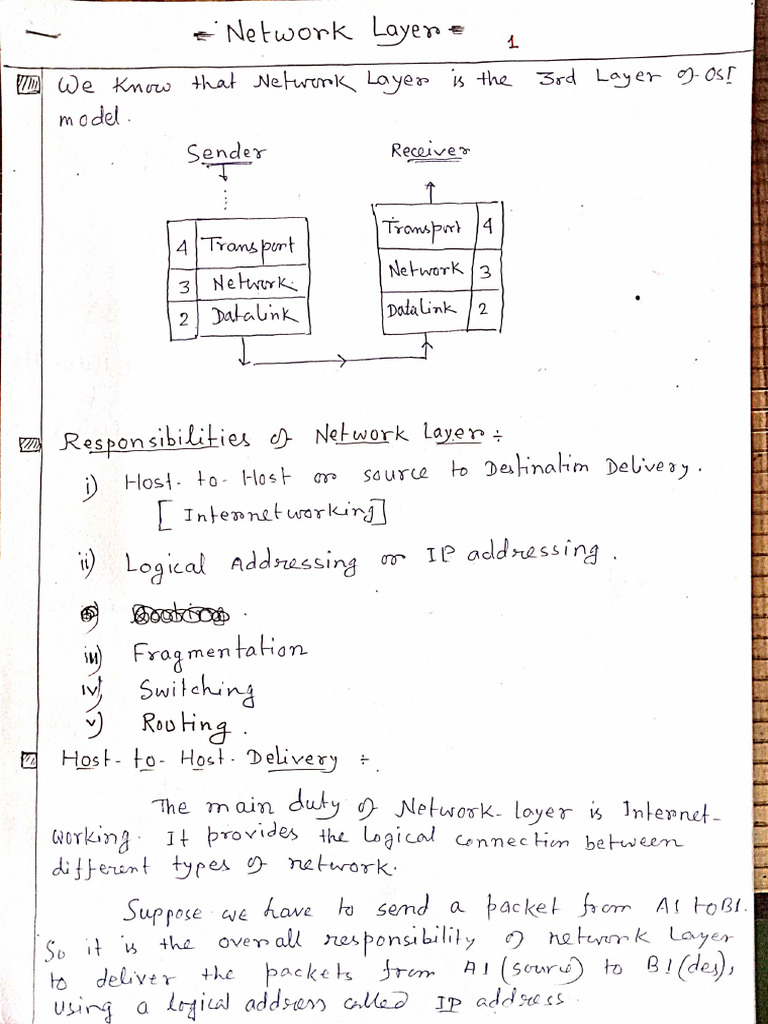 Network Layer
1
We know that Network Layer is the 3rd Layer of OSI
model.
Sender
Receiver
4 Transport
3 Network
2 Datalink
Transport 4
Network 3
Datalink 2
Responsibilities of Network Layer ÷
i) Host-to-Host or source to Destination Delivery.
[Internetworking]
ii) Logical Addressing or IP addressing.
iii) Fragmentation
iv) Switching
v) Routing.
Host-to-Host-Delivery ÷
The main duty of Network-layer is Internet-
working. It provides the logical connection between
different types of network.
Suppose we have to send a packet from A1 to B1.
So it is the overall responsibility of network Layer
to deliver the packets from A1 (source) to B1 (des),
using a logical address called IP address.